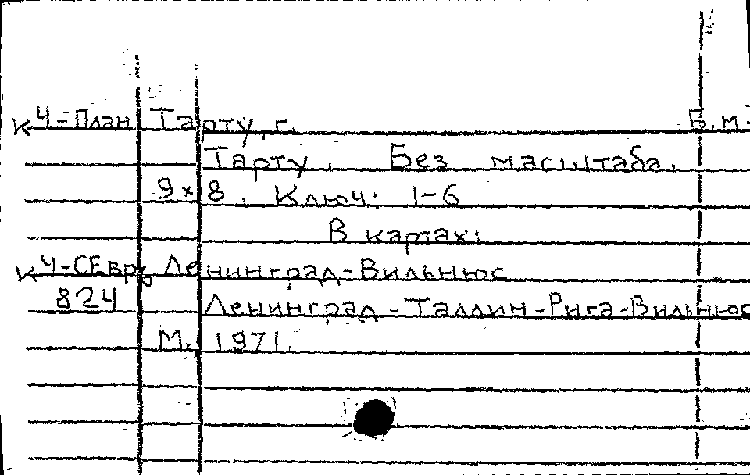 К4-План Тарту, г. Б.м.
Тарту. Без масштаба.
9x8. Ключ: 1-6
В картах:
К4-СЕвр, Ленинград-Вильнюс
824 Ленинград-Таллин-Рига-Вильнюс
М. 1971.